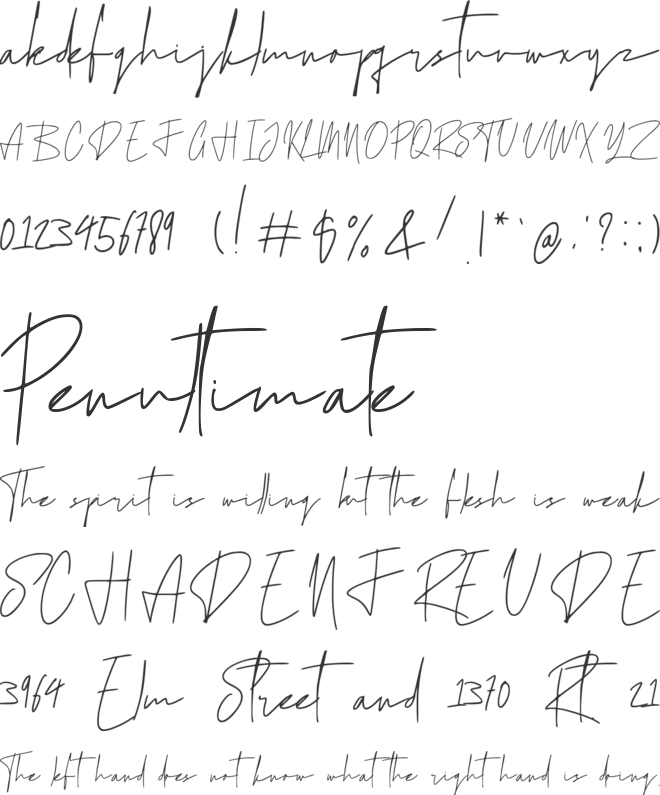 abcdefghijklmnopqrstuvwxyz
ABCDEFGHIJKLMNOPQRSTUVWXYZ
0123456789 (!#$%&/|*`@.'?:;)
Penultimate
The spirit is willing but the flesh is weak
SCHADENFREUDE
3964 Elm Street and 1370 Rt 21
The left hand does not know what the right hand is doing.